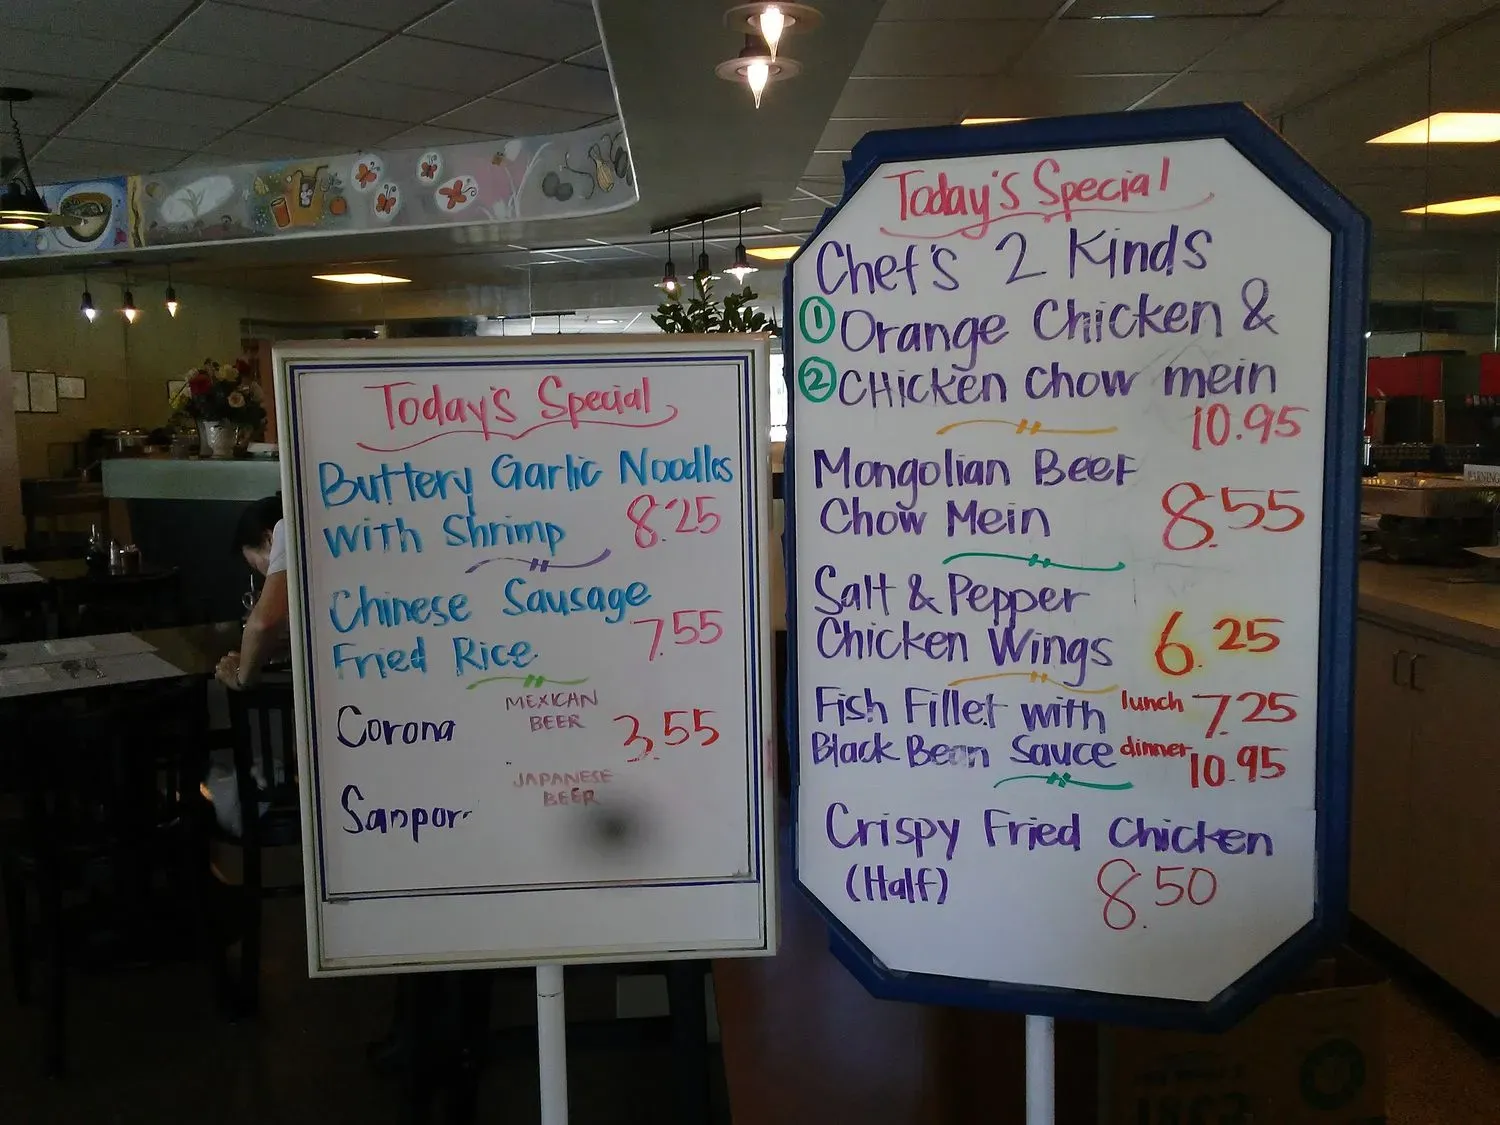 Today's Special
Buttery Garlic Noodles
with Shrimp 8.25
Chinese Sausage
Fried Rice 7.55
Corona MEXICAN BEER 3.55
Sanpor JAPANESE BEER
Today's Special
Chef's 2 Kinds
① Orange Chicken &
② CHicken Chow mein
10.95
Mongolian Beef
Chow Mein 8.55
Salt & Pepper
Chicken Wings 6.25
Fish Fillet with lunch 7.25
Black Bean Sauce dinner 10.95
Crispy Fried Chicken
(Half) 8.50
WARNING